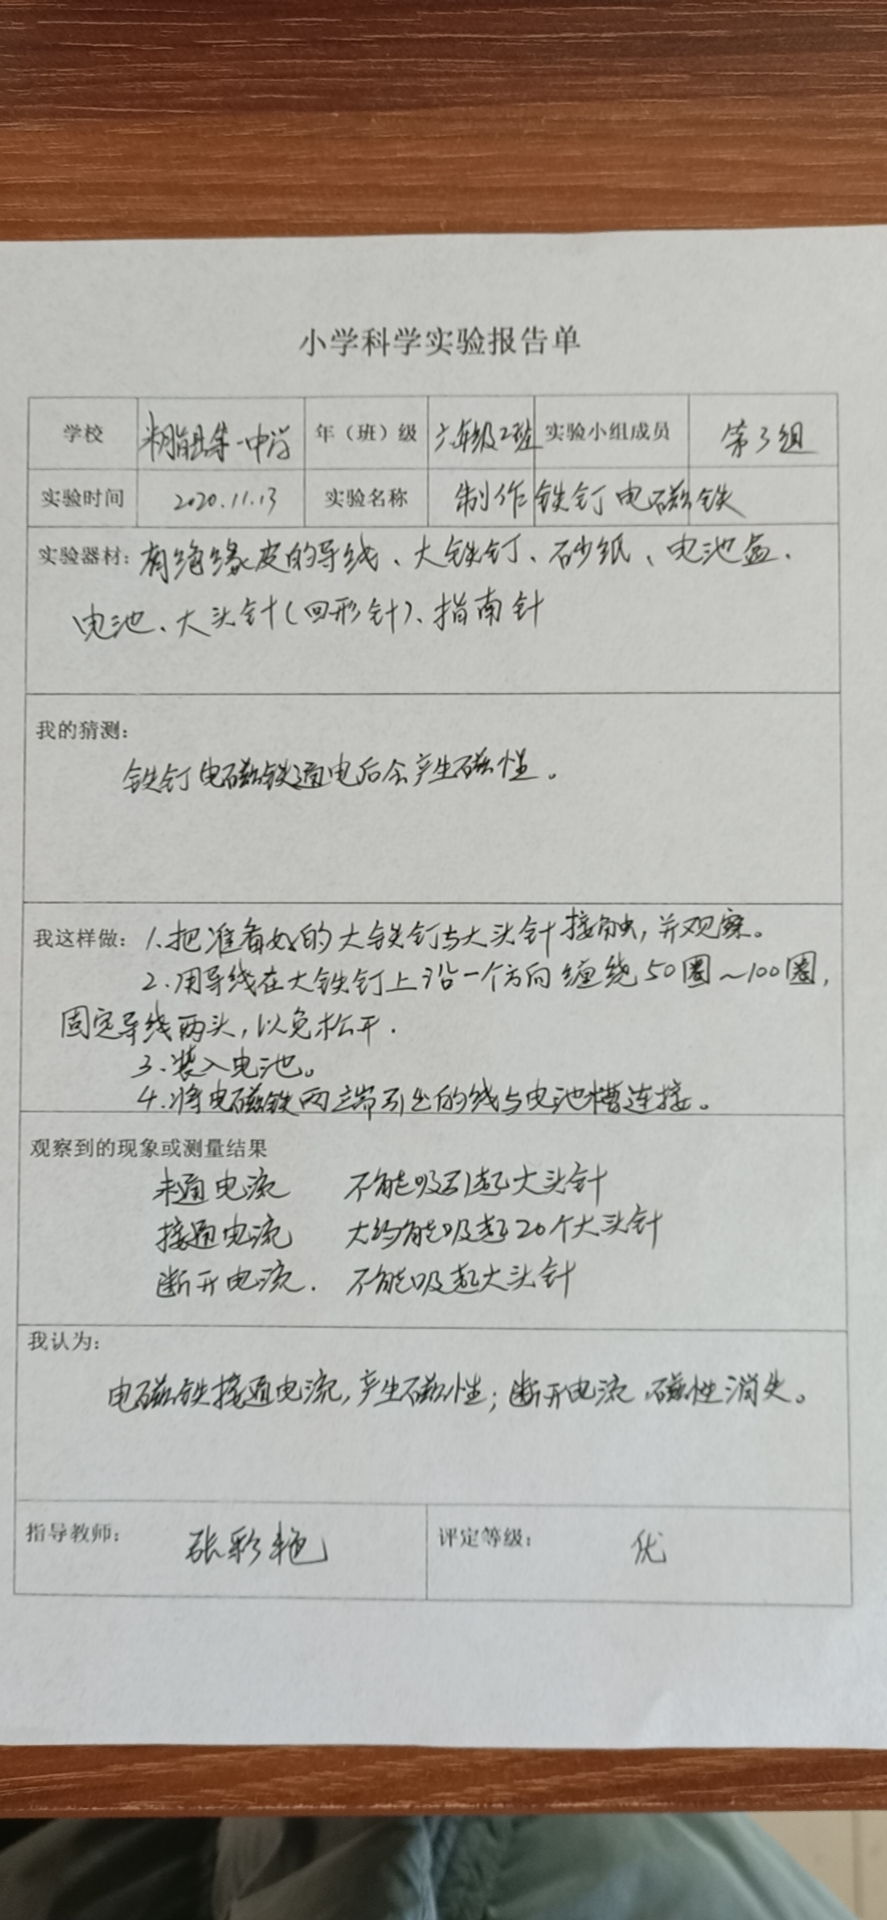 小学科学实验报告单
学校 米脂县第一中学 年（班）级 六年级2班 实验小组成员 第3组
实验时间 2020.11.13 实验名称 制作铁钉电磁铁
实验器材：有绝缘皮的导线、大铁钉、砂纸、电池盒、
电池、大头针(回形针)、指南针
我的猜测：
铁钉电磁铁通电后会产生磁性。
我这样做：1.把准备好的大铁钉与大头针接触，并观察。
2.用导线在大铁钉上沿一个方向缠绕50圈~100圈，
固定导线两头，以免松开.
3.装入电池。
4.将电磁铁两端引出的线与电池槽连接。
观察到的现象或测量结果
未通电流 不能吸引起大头针
接通电流 大约能吸起20个大头针
断开电流. 不能吸起大头针
我认为：
电磁铁接通电流，产生磁性；断开电流，磁性消失。
指导教师： 张彩艳 评定等级： 优